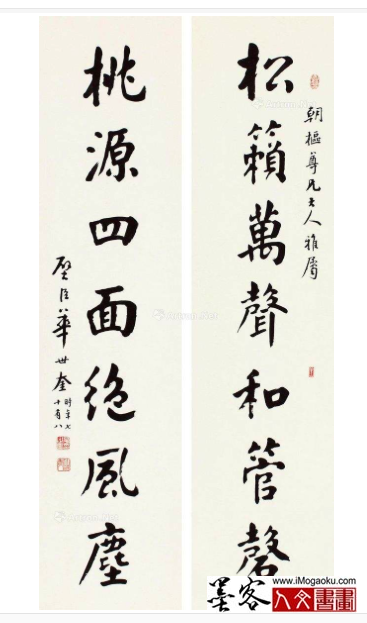 朝樞尊兄大人雅屬
松籟萬聲和管磬
桃源四面絶風塵
璧臣華世奎
時年七
十有八
www.iMogaoku.com
墨客
人文書畫